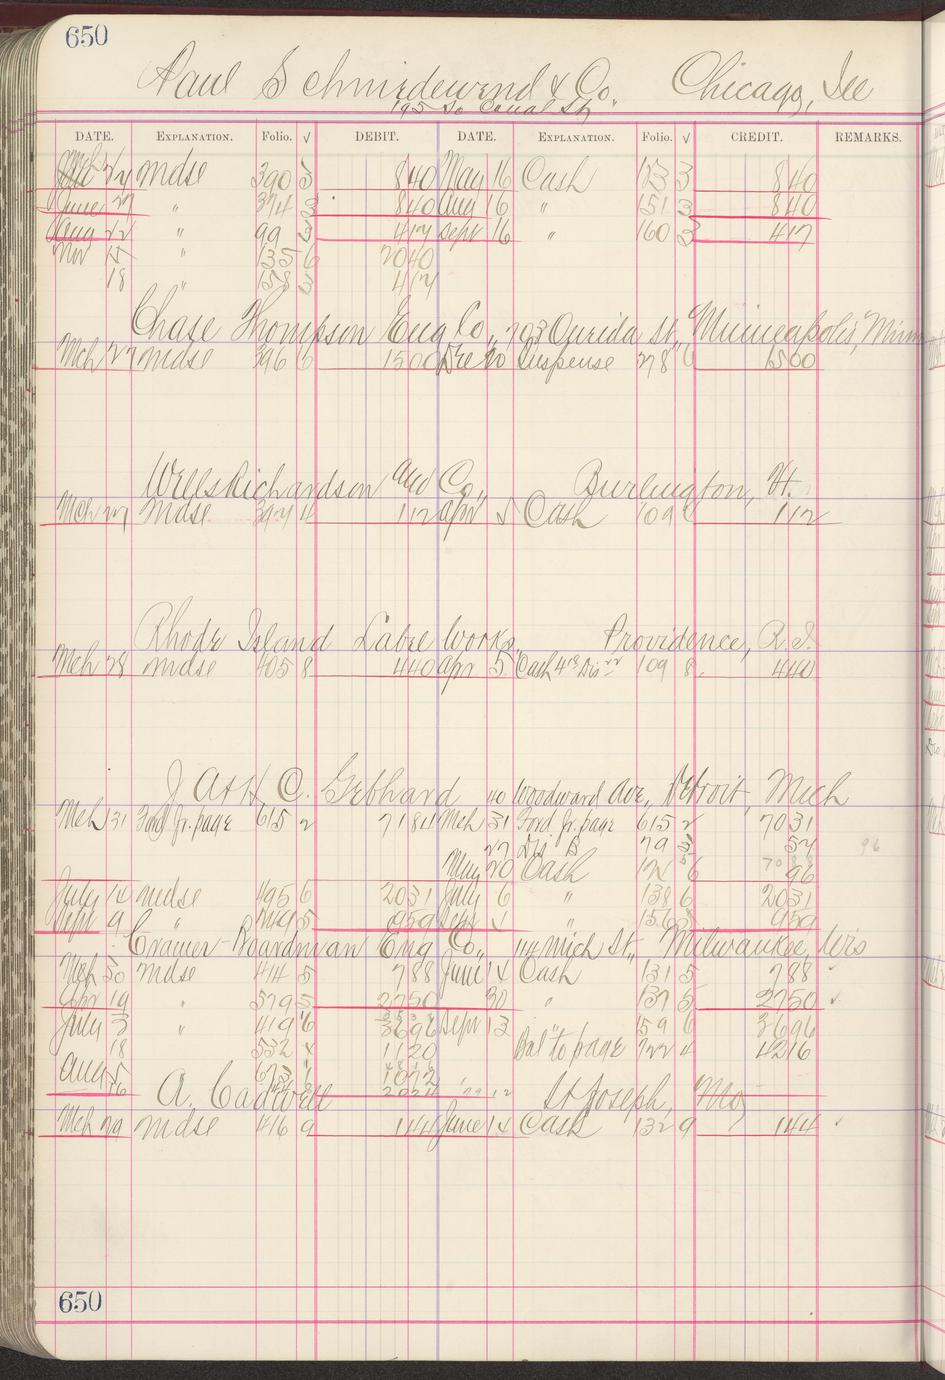 650
Paul Schniedewend & Co. Chicago, Ill
195 So Canal St.
DATE. EXPLANATION. Folio. √ DEBIT. DATE. EXPLANATION. Folio. √ CREDIT. REMARKS.
Mch 24 Mdse 390 5 840 May 16 Cash 123 3 840
June 27 " 374 3 840 Aug 16 " 151 3 840
Aug 22 " 99 3 417 Sept 16 " 160 3 417
Nov 15 " 135 6 2040
18 " 158 3 417
Chase Thompson Eng Co., 703 Oneida St., Minneapolis, Minn
Mch 27 Mdse 396 6 1500 Dec 20 Suspense 278 6 1500
Wells Richardson and Co., Burlington, Vt.
Mch 27 Mdse 397 11 112 Apr 5 Cash 109 112
Rhode Island Label Works, Providence, R.I.
Mch 28 Mdse 405 8 440 Apr 5 Cash 109 8 440
J C. Gebhard 110 Woodward Ave., Detroit, Mich
Mch 31 Ford Jr. page 615 2 7184 Mch 31 Ford Jr. page 615 2 7031
27 Dis B 79 3 57 96
May 20 Cash 124 6 96
July 14 Mdse 495 6 2031 July 6 " 138 6 2031
Sept 9 " 5 959 Sept 1 " 156 959
Cramer-Boardman Eng Co., 114 Mich St., Milwaukee, Wis
Mch 30 Mdse 414 5 788 June 14 Cash 131 5 788
Apr 19 " 579 5 2750 30 " 137 5 2750
July 3 " 419 6 3696 Sept 13 159 6 3696
18 532 4 1120 Bal to page 722 4 4216
Aug 5 673 1 1072
16 2024
A. Cadwell St Joseph, Mo
Mch 29 Mdse 416 9 144 June 14 Cash 132 9 144
650